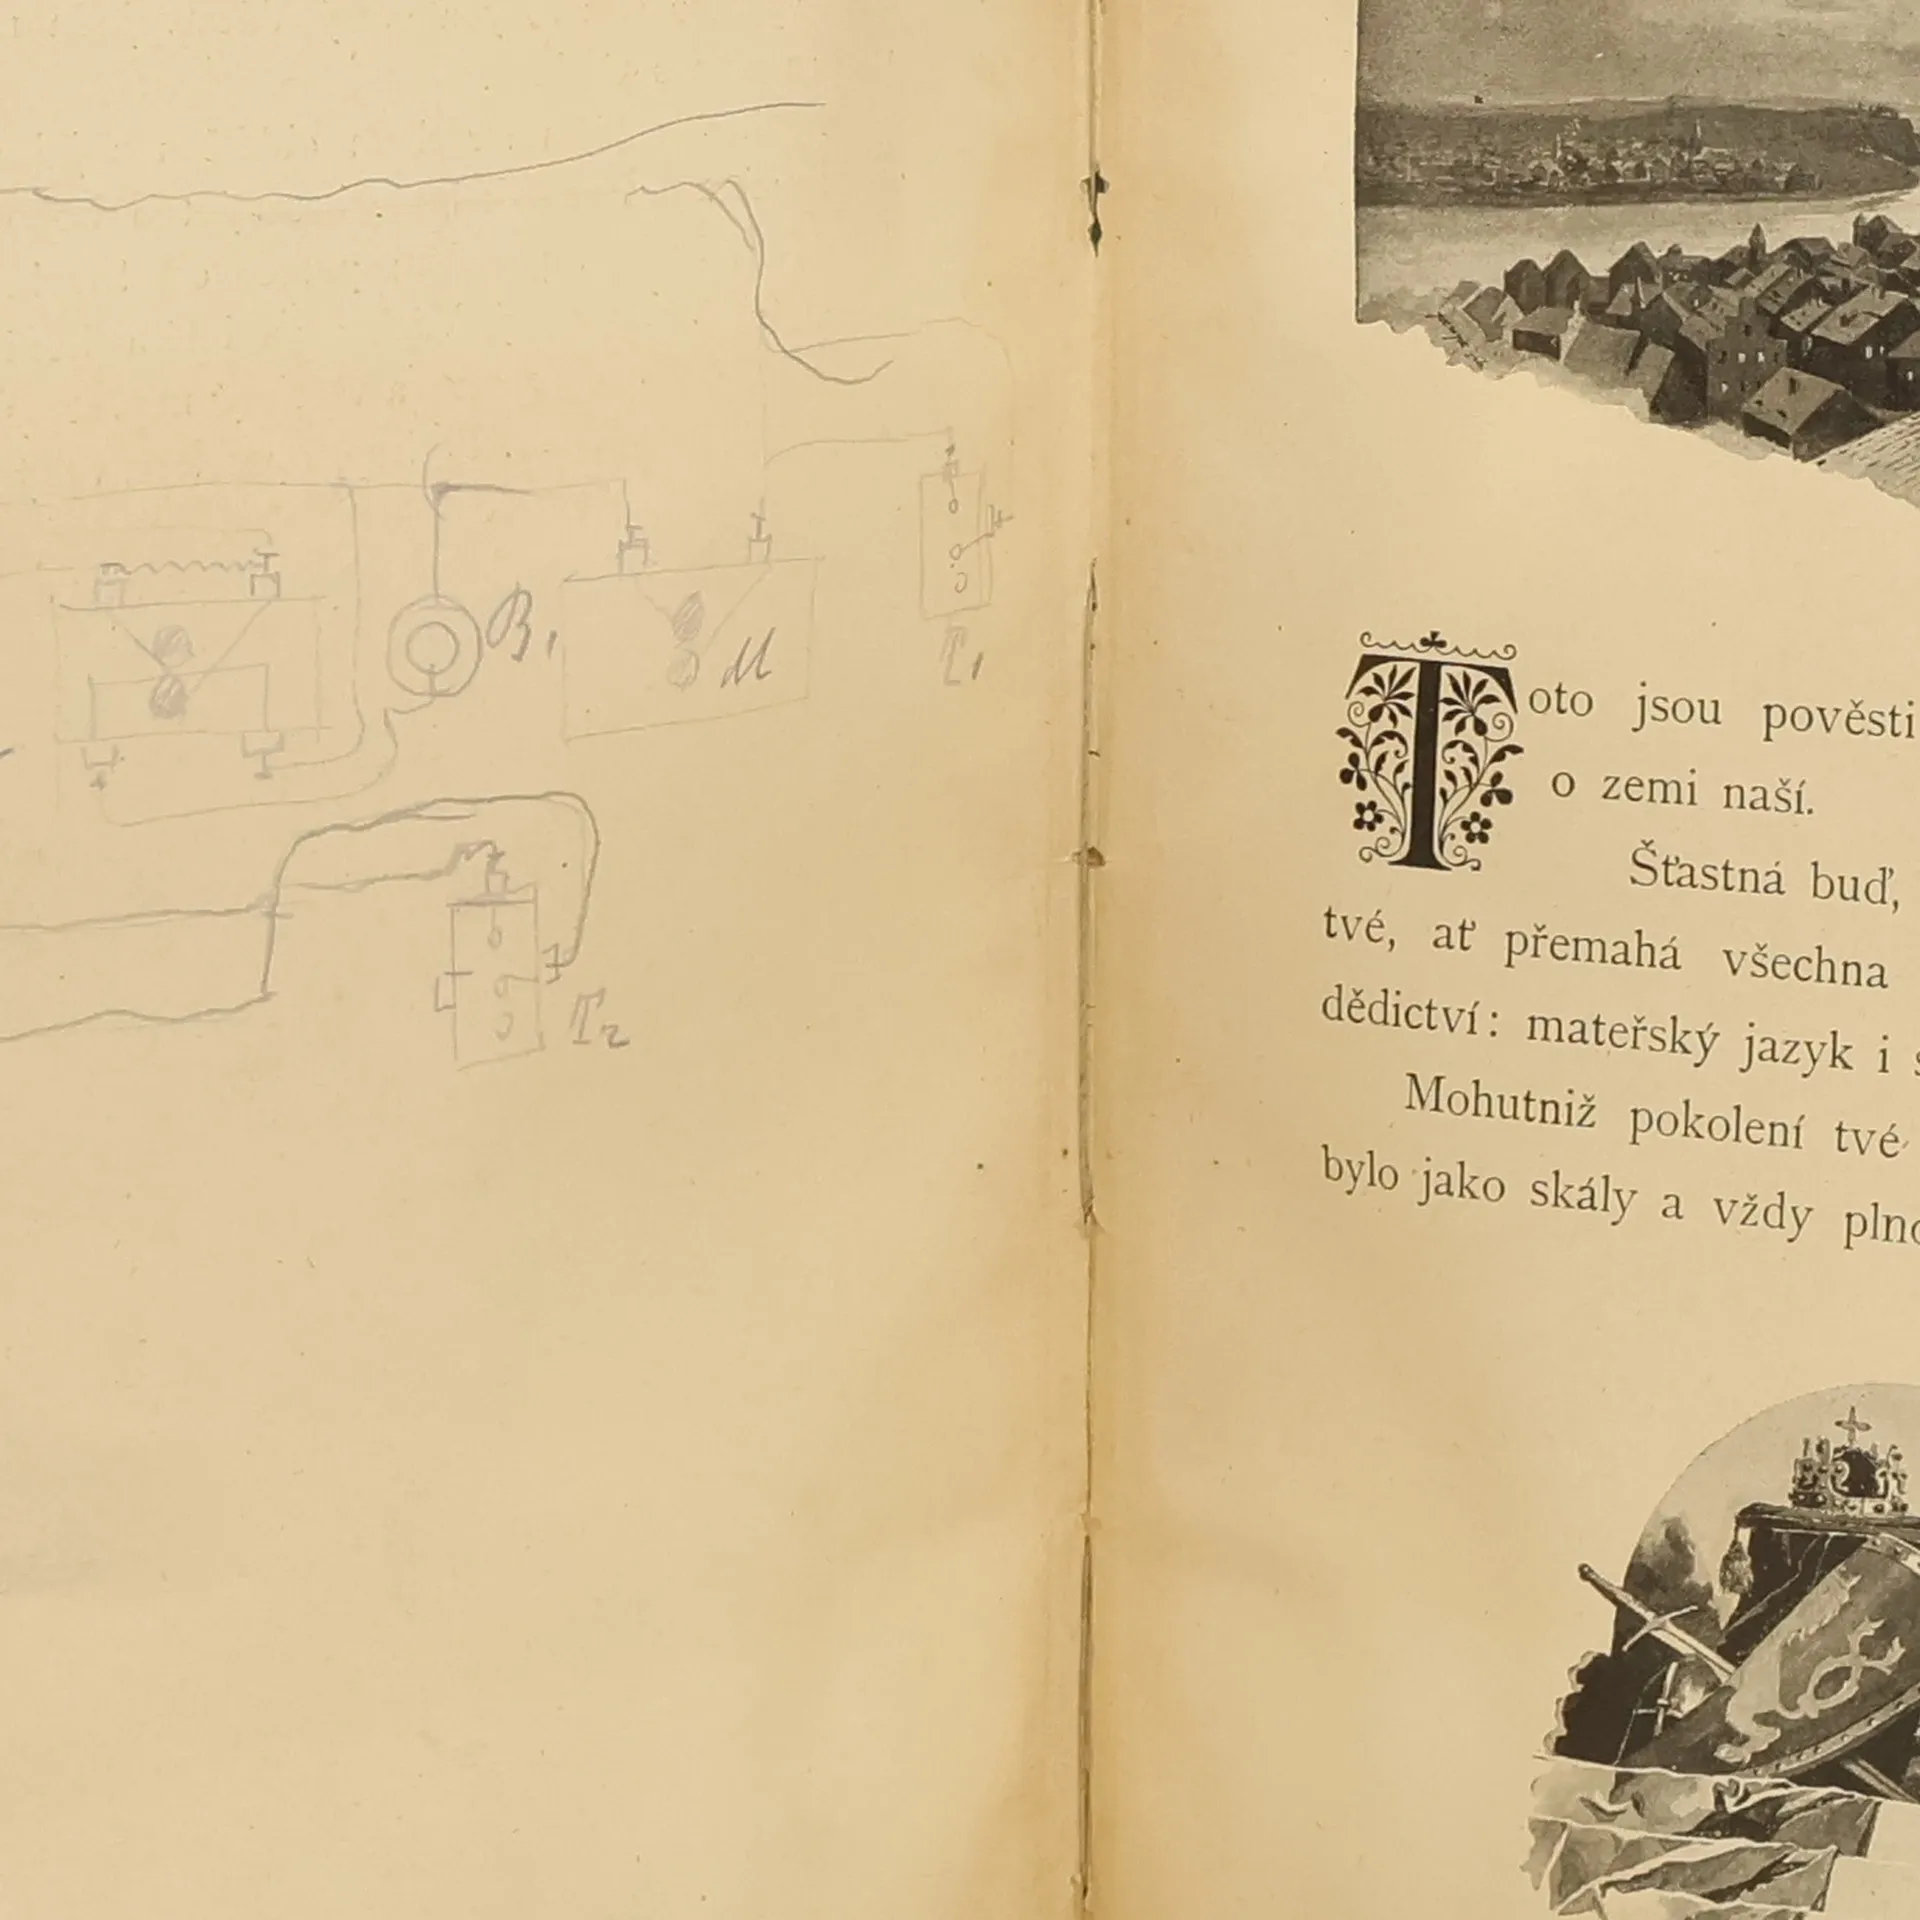 B₁
M
T₁
T₂
Toto jsou pověsti
o zemi naší.
Šťastná buď,
tvé, ať přemahá všechna
dědictví: mateřský jazyk i s
Mohutniž pokolení tvé
bylo jako skály a vždy plno